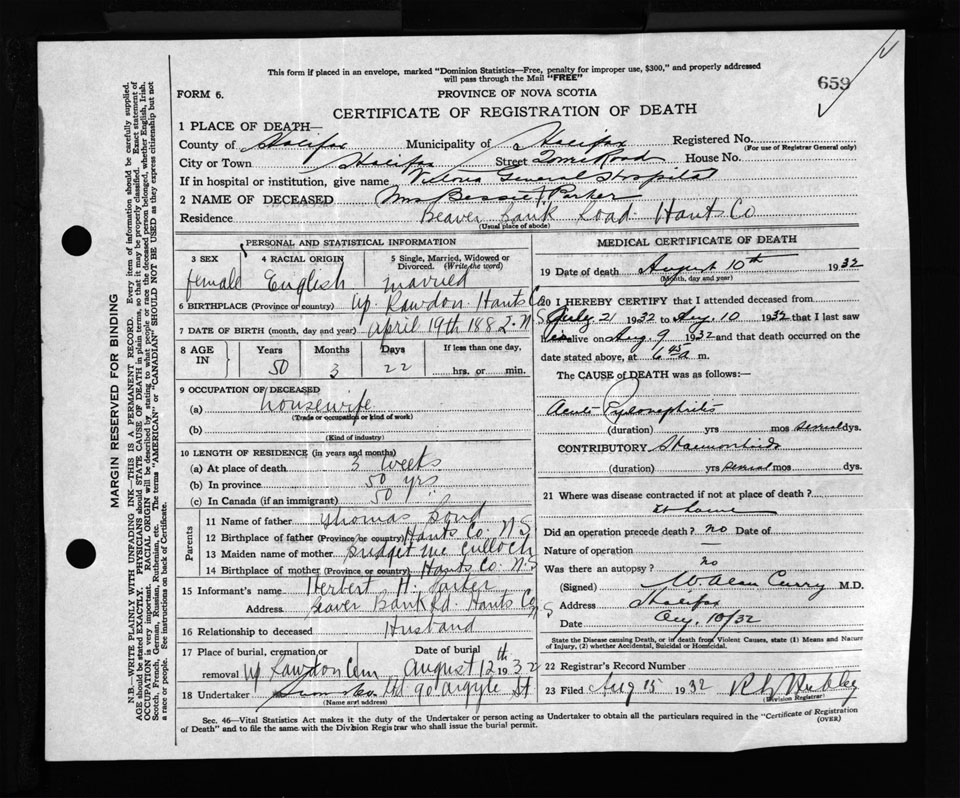 This form if placed in an envelope, marked "Dominion Statistics—Free, penalty for improper use, $300," and properly addressed
will pass through the Mail "FREE"
659
FORM 6.
PROVINCE OF NOVA SCOTIA
CERTIFICATE OF REGISTRATION OF DEATH
1 PLACE OF DEATH—
County of Halifax Municipality of Halifax Registered No.
(For use of Registrar General only)
City or Town Halifax Street Tower Road House No.
If in hospital or institution, give name Victoria General Hospital
2 NAME OF DECEASED Mrs Bessie Parker
Residence Beaver Bank Road. Hants Co
(Usual place of abode)
PERSONAL AND STATISTICAL INFORMATION
3 SEX 4 RACIAL ORIGIN 5 Single, Married, Widowed or
Divorced. (Write the word)
female English married
6 BIRTHPLACE (Province or country) Up. Rawdon. Hants Co N.S
7 DATE OF BIRTH (month, day and year) April 19th 1882
8 AGE IN Years Months Days If less than one day,
50 3 22 hrs. or min.
9 OCCUPATION OF DECEASED
(a) housewife
(Trade or occupation or kind of work)
(b)
(Kind of industry)
10 LENGTH OF RESIDENCE (in years and months)
(a) At place of death 3 weeks
(b) In province 50 yrs
(c) In Canada (if an immigrant) 50 "
Parents
11 Name of father Thomas Bond
12 Birthplace of father (Province or country) Hants Co. N S
13 Maiden name of mother Bridget Mc Culloch
14 Birthplace of mother (Province or country) Hants Co. N.S
15 Informant's name Herbert H. Parker
Address Beaver Bank Rd. Hants Co N S
16 Relationship to deceased Husband
17 Place of burial, cremation or Date of burial
removal Up Rawdon Cem August 12th 1932
18 Undertaker Snow &Co Ltd 90 Argyle St
(Name and address)
MEDICAL CERTIFICATE OF DEATH
19 Date of death August 10th 1932
(Month, day and year)
20 I HEREBY CERTIFY that I attended deceased from
July 21 1932 to Aug. 10 1932 that I last saw
her alive on Aug. 9 1932 and that death occurred on the
date stated above, at 6 45 a m.
The CAUSE of DEATH was as follows:
Acute Pyelonephritis
(duration) yrs mos several dys.
CONTRIBUTORY Haemorrhoids
(duration) yrs several mos dys.
21 Where was disease contracted if not at place of death?
at home
Did an operation precede death? no Date of
Nature of operation —
Was there an autopsy? no
(Signed) W. Alan Curry M.D.
Address Halifax
Date Aug. 10/32
State the Disease causing Death, or in death from Violent Causes, state (1) Means and Nature
of Injury, (2) whether Accidental, Suicidal or Homicidal.
22 Registrar's Record Number
23 Filed Aug 15 1932
(Division Registrar)
Sec. 46—Vital Statistics Act makes it the duty of the Undertaker or person acting as Undertaker to obtain all the particulars required in the "Certificate of Registration
of Death" and to file the same with the Division Registrar who shall issue the burial permit.
(OVER)
MARGIN RESERVED FOR BINDING
N.B.—WRITE PLAINLY WITH UNFADING INK—THIS IS A PERMANENT RECORD. Every item of information should be carefully supplied.
AGE should be stated EXACTLY. PHYSICIANS should STATE CAUSE OF DEATH in plain terms, so that it may be properly classified. Exact statement of
OCCUPATION is very important. RACIAL ORIGIN will be described by stating to what people or race the deceased person belonged, whether English, Irish,
Scotch, French, German, Russian, Ruthenian, etc. The terms "AMERICAN" or "CANADIAN" SHOULD NOT BE USED as they express citizenship but not
a race or people. See instructions on back of Certificate.